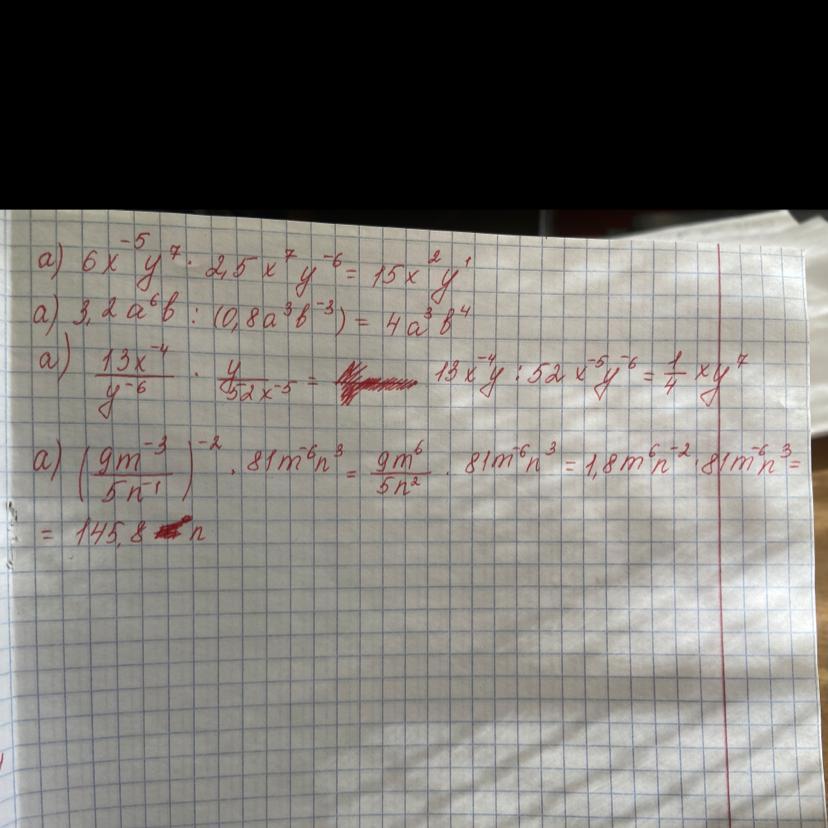 а) 6x⁻⁵y⁷ · 2,5x⁷y⁻⁶ = 15x²y¹
а) 3,2a⁶b : (0,8a³b⁻³) = 4a³b⁴
а) 13x⁻⁴/y⁻⁶ · y/52x⁻⁵ = 13x⁻⁴y : 52x⁻⁵y⁻⁶ = 1/4 xy⁷
а) (9m⁻³/5n⁻¹)⁻² · 81m⁻⁶n³ = 9m⁶/5n² · 81m⁻⁶n³ = 1,8m⁶n⁻² · 81m⁻⁶n³ =
= 145,8 n